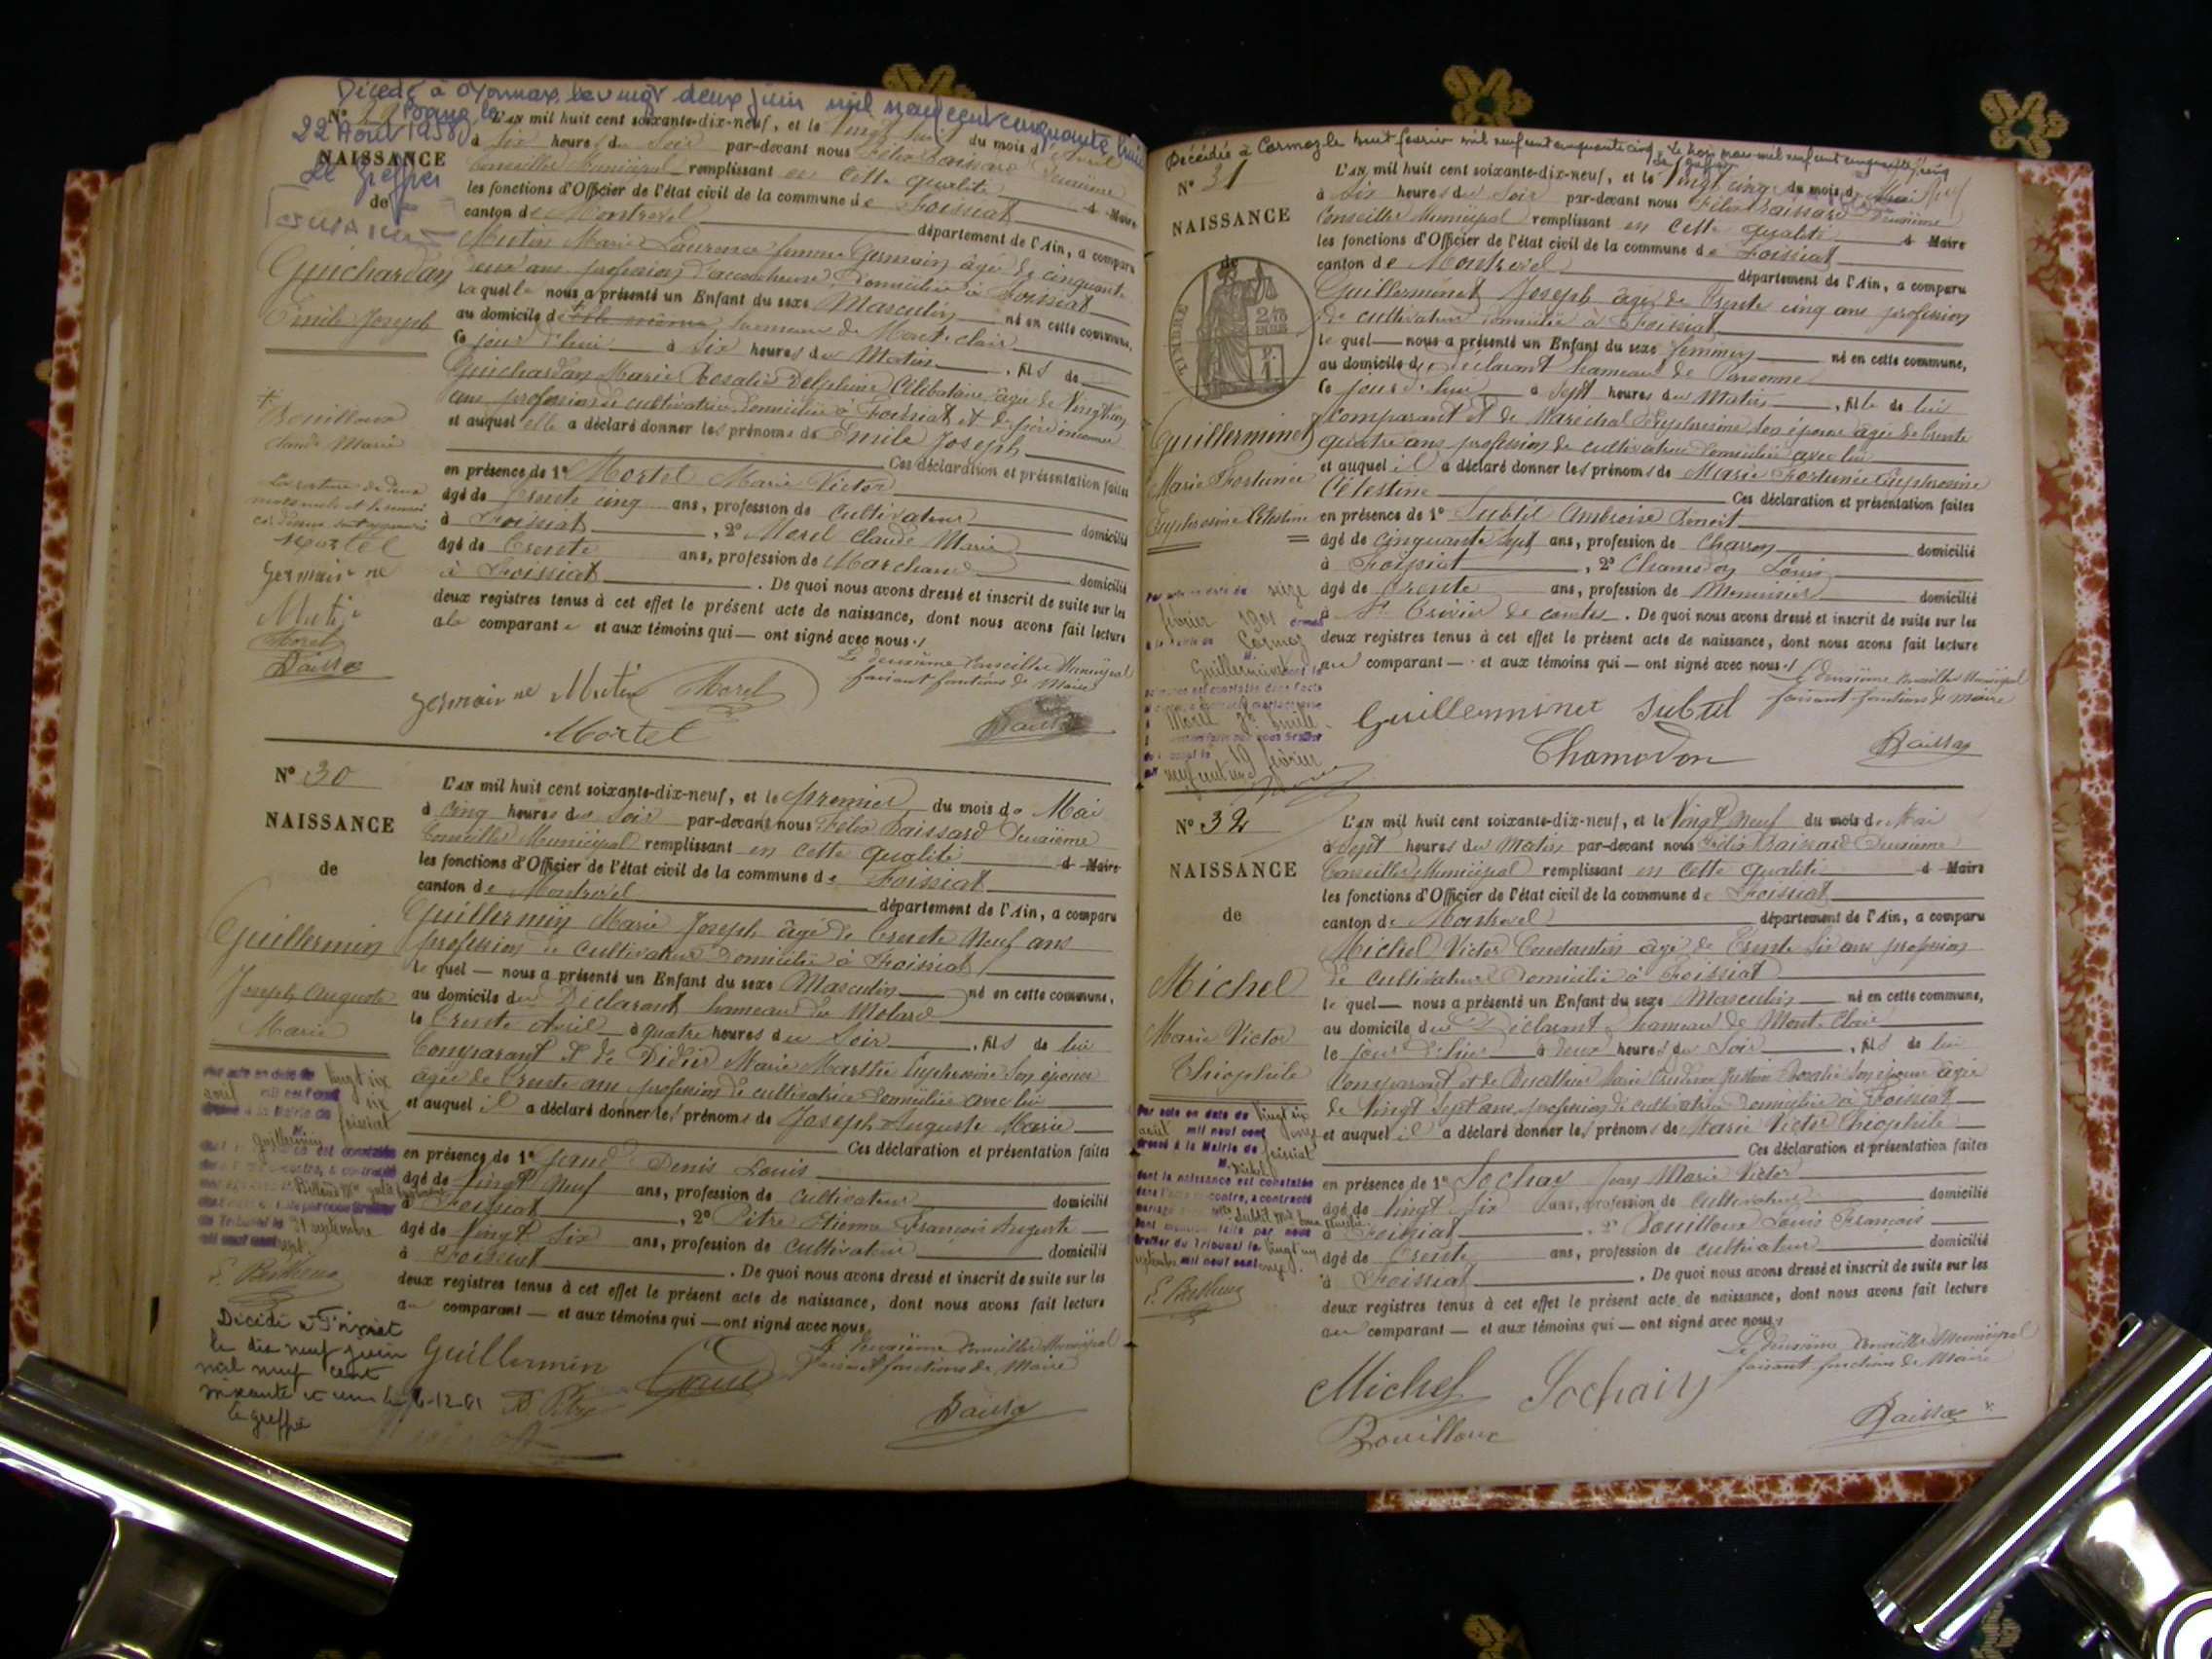 Décédé à Oyonnax le vingt deux juin mil neuf cent cinquante huit
Bourg le
22 Août 1958
Le greffier
N°
NAISSANCE
de
Guichardan
Emile Joseph
L'AN mil huit cent soixante-dix-neuf, et le Vingt huit du mois d'Avril
à Six heures du Soir par-devant nous Félix Baissard Deuxième
Conseiller Municipal remplissant en cette qualité d Maire
les fonctions d'Officier de l'état civil de la commune de Foissiat
canton de Montrevel département de l'Ain, a comparu
Mutin Marie Laurence femme Germain âgée de cinquante
deux ans profession d'accoucheuse, domiciliée à Foissiat
laquelle nous a présenté un Enfant du sexe Masculin né en cette commune,
au domicile d hameau de Mont-clair
ce jour d'hui à Six heures du Matin, fils de
Guichardan Marie Rosalie Delphine Célibataire âgée de Vingt
ans profession de cultivatrice domiciliée à Foissiat et de père inconnu
et auquel elle a déclaré donner les prénoms de Emile Joseph
Ces déclaration et présentation faites
en présence de 1° Mortel Marie Victor
âgé de trente cinq ans, profession de Cultivateur domicilié
à Foissiat, 2° Morel Claude Marie
âgé de trente ans, profession de Marchand domicilié
à Foissiat. De quoi nous avons dressé et inscrit de suite sur les
deux registres tenus à cet effet le présent acte de naissance, dont nous avons fait lecture
à la comparante et aux témoins qui ont signé avec nous.
Le deuxième Conseiller Municipal
faisant fonctions de Maire
germain né Mutin Morel
Mortel Baissard
+ Bouilloux
Claude Marie
La rature de deux
mots nuls et le renvoi
ci-dessus sont approuvés
Mortel
Germain né
Mutin
Morel
Baissard
N° 30
NAISSANCE
de
Guillermin
Joseph Auguste
Marie
L'AN mil huit cent soixante-dix-neuf, et le premier du mois de Mai
à Cinq heures du Soir par-devant nous Félix Baissard Deuxième
Conseiller Municipal remplissant en cette qualité d Maire
les fonctions d'Officier de l'état civil de la commune de Foissiat
canton de Montrevel département de l'Ain, a comparu
Guillermin Marie Joseph âgé de trente Neuf ans
profession de cultivateur Domicilié à Foissiat
lequel — nous a présenté un Enfant du sexe Masculin né en cette commune,
au domicile du Déclarant hameau du Molard
le trente Avril à quatre heures du Soir, fils de lui
Comparant et de Didier Marie Marthe Euphrosine son épouse
âgée de trente ans profession de cultivatrice domiciliée avec lui
et auquel il a déclaré donner les prénoms de Joseph Auguste Marie
Ces déclaration et présentation faites
en présence de 1° Gaud Denis Louis
âgé de Vingt Neuf ans, profession de cultivateur domicilié
à Foissiat, 2° Pitre Etienne François Auguste
âgé de Vingt Six ans, profession de cultivateur domicilié
à Foissiat. De quoi nous avons dressé et inscrit de suite sur les
deux registres tenus à cet effet le présent acte de naissance, dont nous avons fait lecture
au comparant — et aux témoins qui — ont signé avec nous.
Le deuxième Conseiller Municipal
faisant fonctions de Maire
Guillermin Gaud
Baissard
Par acte en date du vingt six
avril mil neuf cent six
dressé à la Mairie de Foissiat
M. Guillermin
dont la naissance est constatée
21 septembre
Décédé à Foissiat
le dix neuf juin
mil neuf cent
soixante et un le 6-12-61
le greffier
Décédée à Cormoz le huit février mil neuf cent cinquante cinq. Le trois mars mil neuf cent cinquante cinq
N° 31
NAISSANCE
de
TIMBRE
Guillerminet
Marie Fortunée
Euphrosine Célestine
L'AN mil huit cent soixante-dix-neuf, et le Vingt cinq du mois de Mai
à Six heures du Soir par-devant nous Félix Baissard Deuxième
Conseiller Municipal remplissant en cette qualité d Maire
les fonctions d'Officier de l'état civil de la commune de Foissiat
canton de Montrevel département de l'Ain, a comparu
Guillerminet Joseph âgé de Trente cinq ans profession
de cultivateur domicilié à Foissiat
lequel — nous a présenté un Enfant du sexe féminin né en cette commune,
au domicile du déclarant hameau de
ce jour d'hui à Sept heures du Matin, fille de lui
Comparant et de Maréchal Euphrosine son épouse âgée de trente
quatre ans profession de cultivatrice domiciliée avec lui
et auquel il a déclaré donner les prénoms de Marie Fortunée Euphrosine
Célestine Ces déclaration et présentation faites
en présence de 1° Subtil Ambroise Benoit
âgé de cinquante Sept ans, profession de Charron domicilié
à Foissiat, 2° Chamodon Louis
âgé de trente ans, profession de Menuisier domicilié
à St Trivier de courtes. De quoi nous avons dressé et inscrit de suite sur les
deux registres tenus à cet effet le présent acte de naissance, dont nous avons fait lecture
au comparant — et aux témoins qui — ont signé avec nous.
Le deuxième Conseiller Municipal
faisant fonctions de Maire
Guillerminet Subtil
Chamodon Baissard
seize
février 1901
Cormoz
Guillerminet
Morel
19 février
neuf cent un
N° 32
NAISSANCE
de
Michel
Marie Victor
Théophile
L'AN mil huit cent soixante-dix-neuf, et le Vingt Neuf du mois de Mai
à Sept heures du Matin par-devant nous Félix Baissard Deuxième
Conseiller Municipal remplissant en cette qualité d Maire
les fonctions d'Officier de l'état civil de la commune de Foissiat
canton de Montrevel département de l'Ain, a comparu
Michel Victor Constantin âgé de Trente Six ans profession
de cultivateur Domicilié à Foissiat
lequel — nous a présenté un Enfant du sexe Masculin né en cette commune,
au domicile du Déclarant hameau de Mont-Clair
le jour d'hier à deux heures du Soir, fils de lui
comparant et de Marie Rosalie son épouse âgée
de Vingt Sept ans, profession de cultivatrice domiciliée à Foissiat
et auquel il a déclaré donner les prénoms de Marie Victor Théophile
Ces déclaration et présentation faites
en présence de 1° Sochay Jean Marie Victor
âgé de Vingt Six ans, profession de cultivateur domicilié
à Foissiat, 2° Bouilloux Louis François
âgé de trente ans, profession de cultivateur domicilié
à Foissiat. De quoi nous avons dressé et inscrit de suite sur les
deux registres tenus à cet effet le présent acte de naissance, dont nous avons fait lecture
au comparant — et aux témoins qui — ont signé avec nous.
Le deuxième Conseiller Municipal
faisant fonctions de Maire
Michel Sochaiy
Bouilloux Baissard
Par acte en date du vingt six
août mil neuf cent onze
dressé à la Mairie de Foissiat
M. Michel
dont la naissance est constatée
dans l'acte ci-contre, a contracté
mariage avec Subtil
Dont mention faite par nous
Greffier du Tribunal le vingt un
septembre mil neuf cent onze.